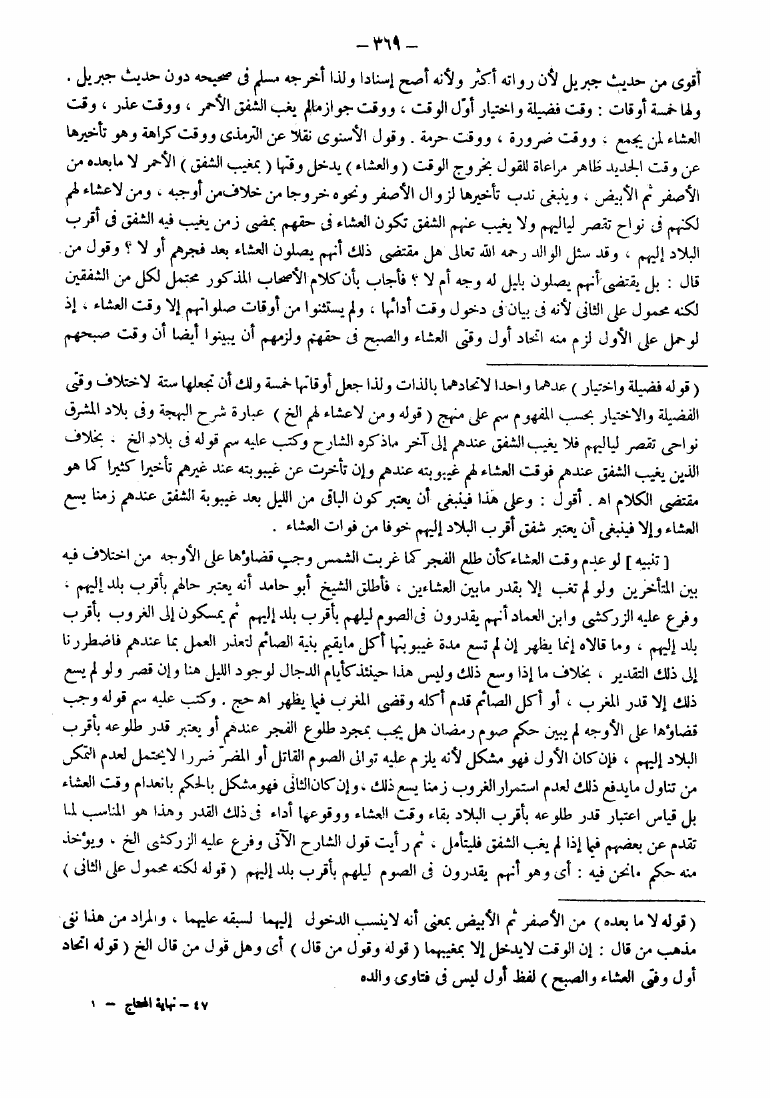 - ٣٦٩ -
أقوى من حديث جبريل لأن رواته أكثر ولأنه أصح إسنادا ولذا أخرجه مسلم فى صحيحه دون حديث جبريل .
ولها خمسة أوقات : وقت فضيلة واختيار أوّل الوقت ، ووقت جواز مالم يغب الشفق الأحمر ، ووقت عذر ، وقت
العشاء لمن يجمع ، ووقت ضرورة ، ووقت حرمة . وقول الأسنوى نقلا عن الترمذى ووقت كراهة وهو تأخيرها
عن وقت الجديد ظاهر مراعاة للقول بخروج الوقت ( والعشاء ) يدخل وقتها ( بمغيب الشفق ) الأحمر لا مابعده من
الأصفر ثم الأبيض ، وينبغى ندب تأخيرها لزوال الأصفر ونحوه خروجا من خلاف من أوجبه ، ومن لاعشاء لهم
لكنهم فى نواح تقصر لياليهم ولا يغيب عنهم الشفق تكون العشاء فى حقهم بمضى زمن يغيب فيه الشفق فى أقرب
البلاد إليهم ، وقد سئل الوالد رحمه الله تعالى هل مقتضى ذلك أنهم يصلون العشاء بعد فجرهم أو لا ؟ وقول من
قال : بل يقتضى أنهم يصلون بليل له وجه أم لا ؟ فأجاب بأن كلام الأصحاب المذكور محتمل لكل من الشفقين
لكنه محمول على الثانى لأنه فى بيان فى دخول وقت أدائها ، ولم يستثنوا من أوقات صلواتهم إلا وقت العشاء ، إذ
لو حمل على الأول لزم منه اتحاد أول وقتى العشاء والصبح فى حقهم ولزمهم أن يبينوا أيضا أن وقت صبحهم
( قوله فضيلة واختيار ) عدهما واحدا لاتحادهما بالذات ولذا جعل أوقاتها خمسة ولك أن تجعلها ستة لاختلاف وقتى
الفضيلة والاختيار بحسب المفهوم سم على منهج ( قوله ومن لاعشاء لهم الخ ) عبارة شرح البهجة وفى بلاد المشرق
نواحى تقصر لياليهم فلا يغيب الشفق عندهم إلى آخر ماذكره الشارح وكتب عليه سم قوله فى بلاد الخ . بخلاف
الذين يغيب الشفق عندهم فوقت العشاء لهم غيبوبته عندهم وإن تأخرت عن غيبوبته عند غيرهم تأخيرا كثيرا كما هو
مقتضى الكلام اهـ . أقول : وعلى هذا فينبغى أن يعتبر كون الباقى من الليل بعد غيبوبة الشفق عندهم زمنا يسع
العشاء وإلا فينبغى أن يعتبر شفق أقرب البلاد إليهم خوفا من فوات العشاء .
[ تنبيه ] لو عدم وقت العشاء كأن طلع الفجر كما غربت الشمس وجب قضاؤها على الأوجه من اختلاف فيه
بين المتأخرين ولو لم تغب إلا بقدر مابين العشاءين ، فأطلق الشيخ أبو حامد أنه يعتبر حالهم بأقرب بلد إليهم ،
وفرع عليه الزركشى وابن العماد أنهم يقدرون فى الصوم ليلهم بأقرب بلد إليهم ثم يمسكون إلى الغروب بأقرب
بلد إليهم ، وما قالاه إنما يظهر إن لم تسع مدة غيبوبتها أكل مايقيم بنية الصائم لتعذر العمل بما عندهم فاضطررنا
إلى ذلك التقدير ، بخلاف ما إذا وسع ذلك وليس هذا حينئذ كأيام الدجال لوجود الليل هنا وإن قصر ولو لم يسع
ذلك إلا قدر المغرب ، أو أكل الصائم قدم أكله وقضى المغرب فيما يظهر اهـ حج . وكتب عليه سم قوله وجب
قضاؤها على الأوجه لم يبين حكم صوم رمضان هل يجب بمجرد طلوع الفجر عندهم أو يعتبر قدر طلوعه بأقرب
البلاد إليهم ، فإن كان الأول فهو مشكل لأنه يلزم عليه توالى الصوم القاتل أو المضرّ ضررا لايحتمل لعدم التمكن
من تناول مايدفع ذلك لعدم استمرار الغروب زمنا يسع ذلك ، وإن كان الثانى فهو مشكل بالحكم بانعدام وقت العشاء
بل قياس اعتبار قدر طلوعه بأقرب البلاد بقاء وقت العشاء ووقوعها أداء فى ذلك القدر وهذا هو المناسب لما
تقدم عن بعضهم فيما إذا لم يغب الشفق فليتأمل ، ثم رأيت قول الشارح الآتى وفرع عليه الزركشى الخ ، ويؤخذ
منه حكم مانحن فيه : أى وهو أنهم يقدرون فى الصوم ليلهم بأقرب بلد إليهم ( قوله لكنه محمول على الثانى )
( قوله لا ما بعده ) من الأصفر ثم الأبيض بمعنى أنه لاينسب الدخول إليهما لسبقه عليهما ، والمراد من هذا نفى
مذهب من قال : إن الوقت لايدخل إلا بمغيبهما ( قوله وقول من قال ) أى وهل قول من قال الخ ( قوله اتحاد
أول وقتى العشاء والصبح ) لفظ أول ليس فى فتاوى والده
٤٧ - نهاية المحتاج - ١